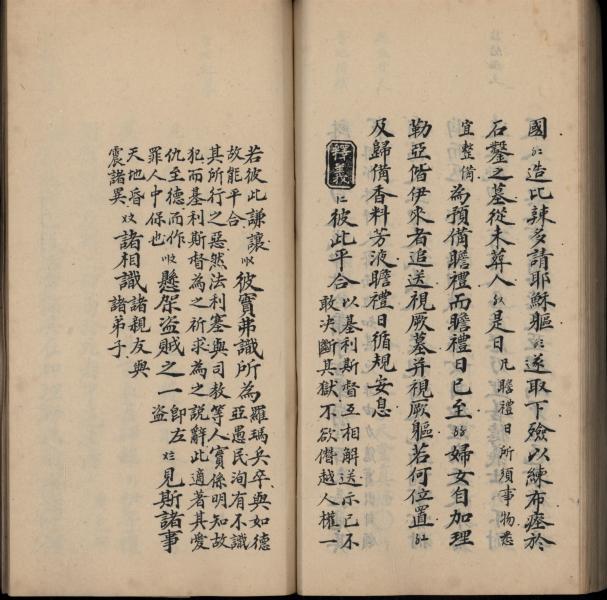 國造比辣多請耶穌軀遂取下殮以練布瘞於
石鑿之墓從未葬人是日凡瞻禮日所須事物悉
宜整備為預備瞻禮而瞻禮日已至婦女自加理
勒亞偕伊來者追送視厥墓并視厥軀若何位置
及歸備香料芳液瞻禮日循規安息
釋義彼此平合以基利斯督互相解送示已不
敢決斷其獄不欲僭越人權一
若彼此謙讓
故能平合彼實弗識所為羅瑪兵卒與如德
亞愚民洵有不識
其所行之惡然法利塞與司教等人實係明知故
犯而基利斯督為之祈求為之説辭此適著其愛
仇至德而作
罪人中保也懸架盜賊之一即左
盜見斯諸事
天地昏
震諸異諸相識諸親友與
諸弟子